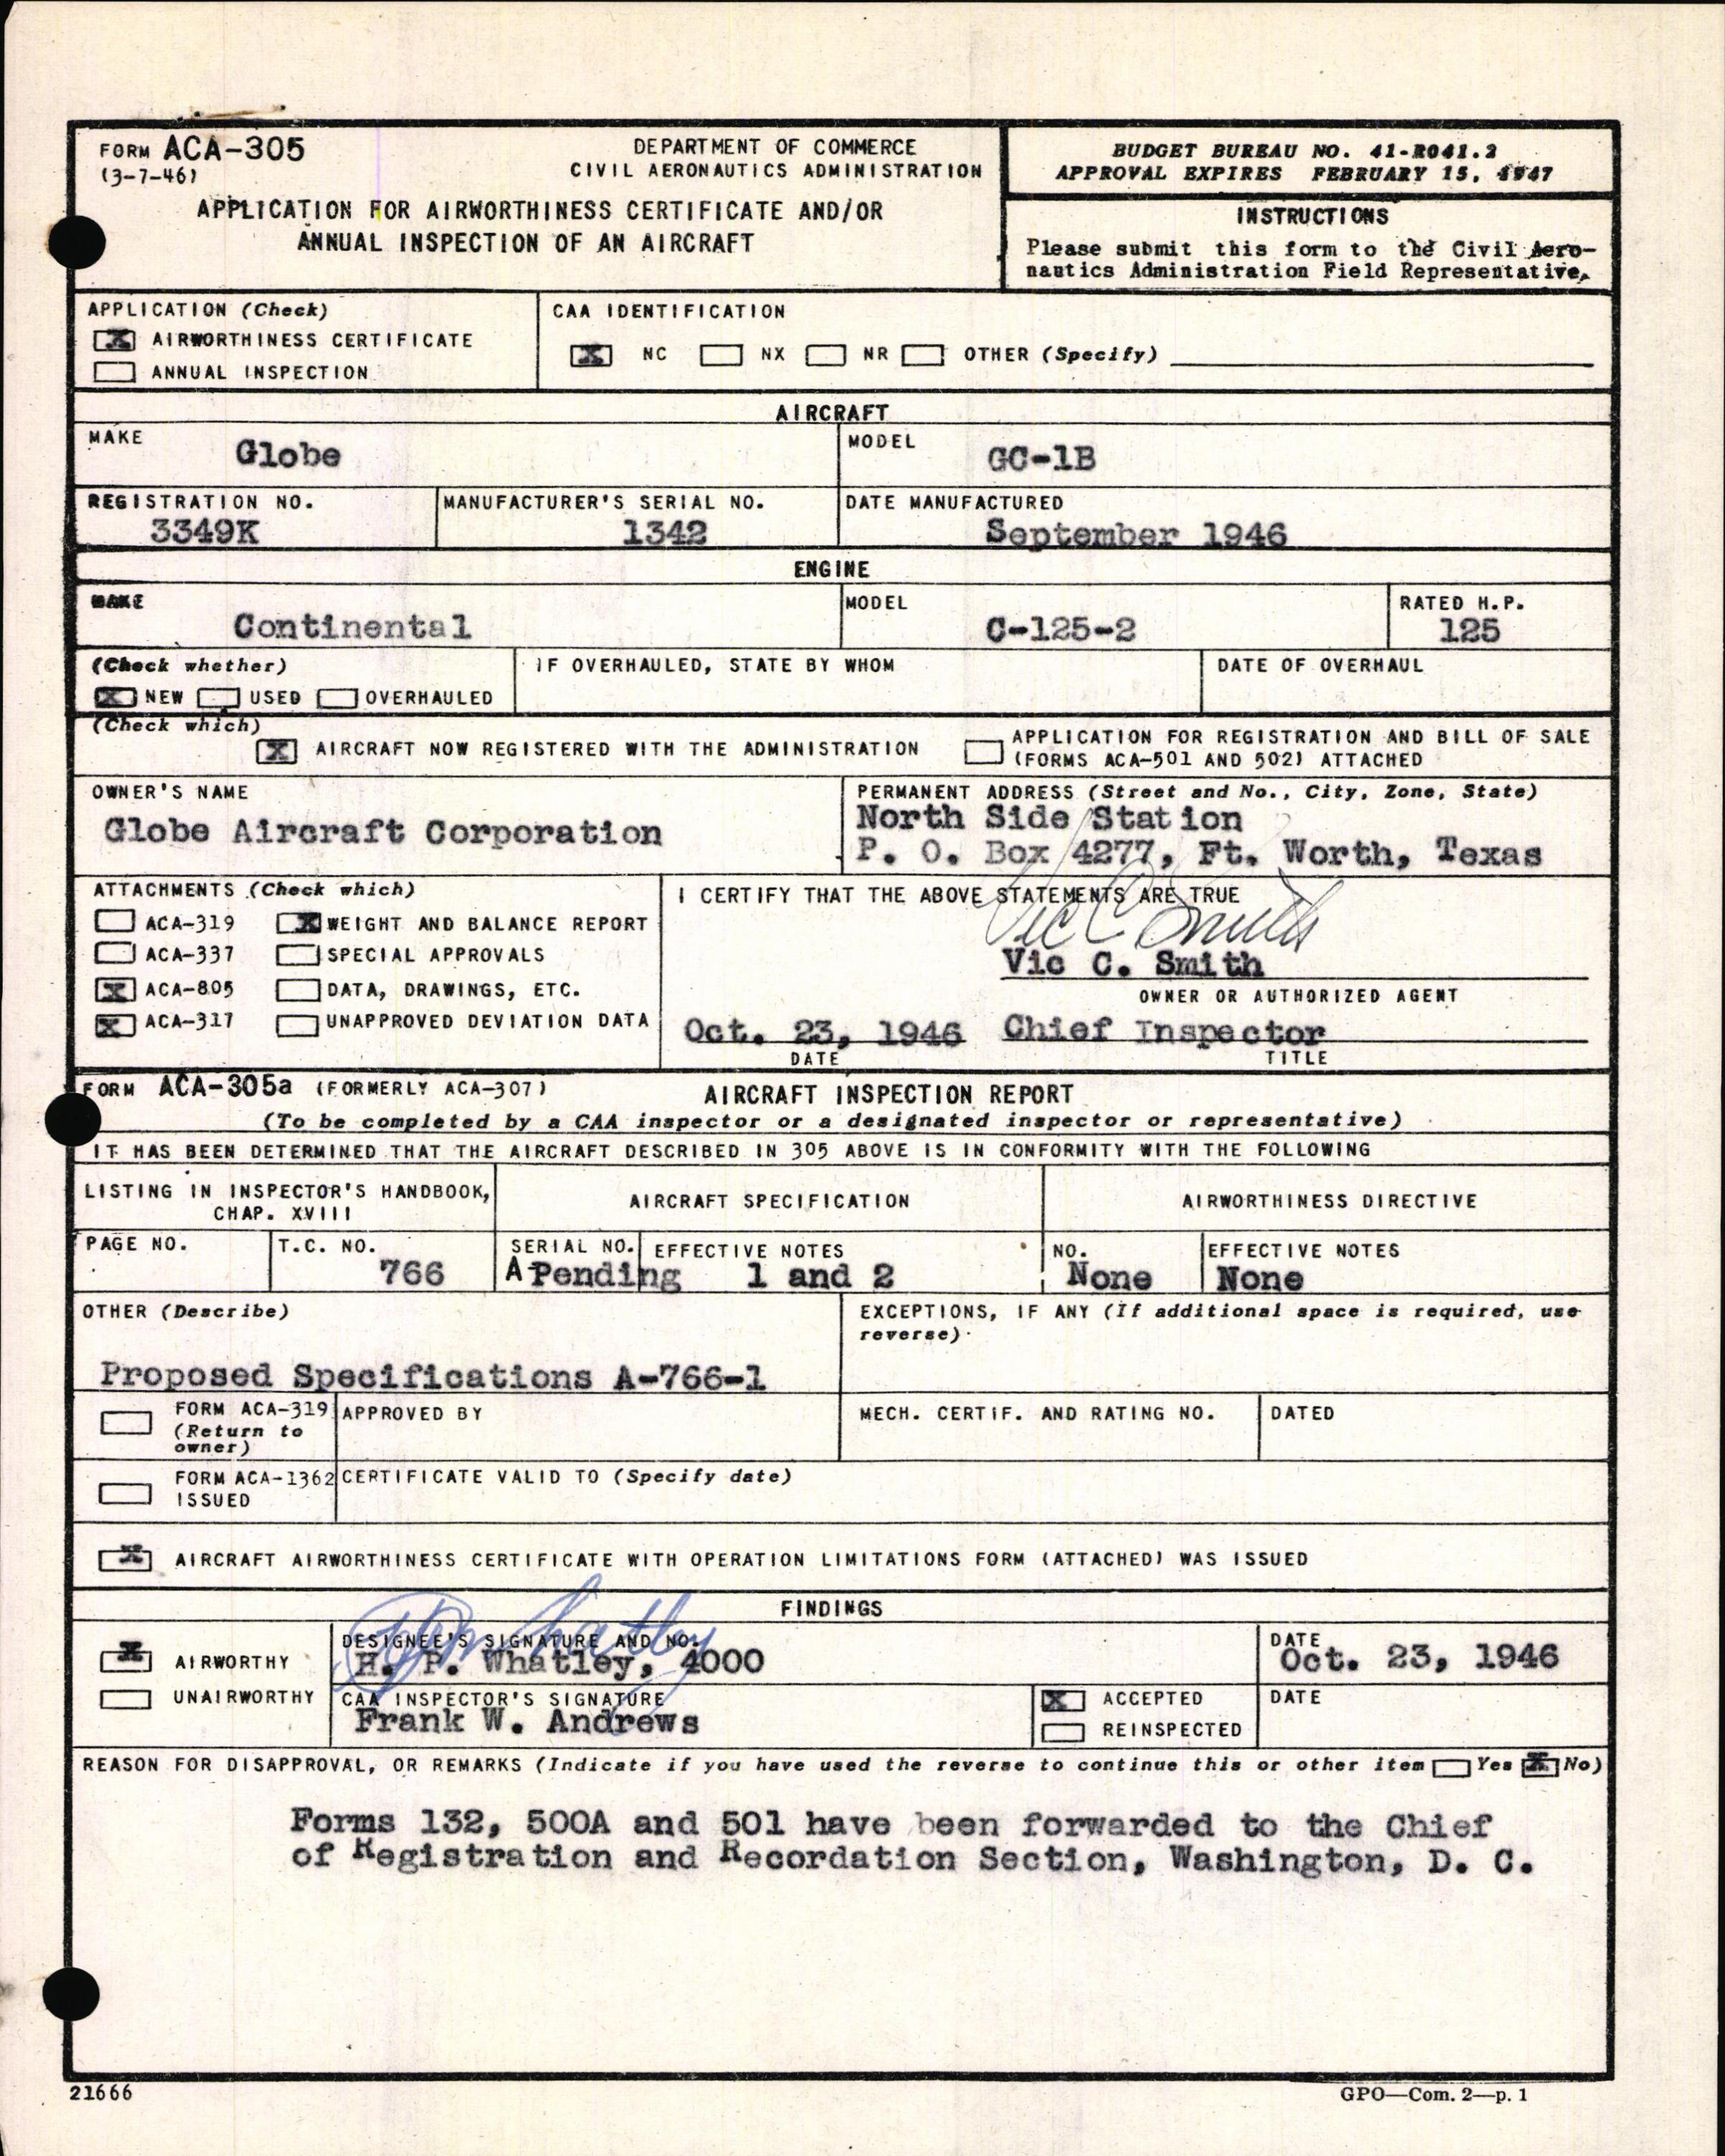 FORM ACA-305
(3-7-46)
DEPARTMENT OF COMMERCE
CIVIL AERONAUTICS ADMINISTRATION
APPLICATION FOR AIRWORTHINESS CERTIFICATE AND/OR
ANNUAL INSPECTION OF AN AIRCRAFT
BUDGET BUREAU NO. 41-R041.2
APPROVAL EXPIRES FEBRUARY 15, 1947
INSTRUCTIONS
Please submit this form to the Civil Aero-
nautics Administration Field Representative.
APPLICATION (Check)
X AIRWORTHINESS CERTIFICATE
ANNUAL INSPECTION
CAA IDENTIFICATION
X NC NX NR OTHER (Specify)
AIRCRAFT
MAKE
Globe
MODEL
GC-1B
REGISTRATION NO.
3349K
MANUFACTURER'S SERIAL NO.
1342
DATE MANUFACTURED
September 1946
ENGINE
MAKE
Continental
MODEL
C-125-2
RATED H.P.
125
(Check whether)
X NEW USED OVERHAULED
IF OVERHAULED, STATE BY WHOM
DATE OF OVERHAUL
(Check which)
X AIRCRAFT NOW REGISTERED WITH THE ADMINISTRATION
APPLICATION FOR REGISTRATION AND BILL OF SALE
(FORMS ACA-501 AND 502) ATTACHED
OWNER'S NAME
Globe Aircraft Corporation
PERMANENT ADDRESS (Street and No., City, Zone, State)
North Side Station
P. O. Box 4277, Ft. Worth, Texas
ATTACHMENTS (Check which)
ACA-319 X WEIGHT AND BALANCE REPORT
ACA-337 SPECIAL APPROVALS
X ACA-805 DATA, DRAWINGS, ETC.
X ACA-317 UNAPPROVED DEVIATION DATA
I CERTIFY THAT THE ABOVE STATEMENTS ARE TRUE
Vic C Smith
Vic C. Smith
OWNER OR AUTHORIZED AGENT
Oct. 23, 1946 Chief Inspector
DATE TITLE
FORM ACA-305a (FORMERLY ACA-307) AIRCRAFT INSPECTION REPORT
(To be completed by a CAA inspector or a designated inspector or representative)
IT HAS BEEN DETERMINED THAT THE AIRCRAFT DESCRIBED IN 305 ABOVE IS IN CONFORMITY WITH THE FOLLOWING
LISTING IN INSPECTOR'S HANDBOOK,
CHAP. XVIII
AIRCRAFT SPECIFICATION
AIRWORTHINESS DIRECTIVE
PAGE NO.
T.C. NO.
766
SERIAL NO.
A Pending
EFFECTIVE NOTES
1 and 2
NO.
None
EFFECTIVE NOTES
None
OTHER (Describe)
Proposed Specifications A-766-1
EXCEPTIONS, IF ANY (If additional space is required, use
reverse)
FORM ACA-319
(Return to
owner)
APPROVED BY
MECH. CERTIF. AND RATING NO.
DATED
FORM ACA-1362
ISSUED
CERTIFICATE VALID TO (Specify date)
X AIRCRAFT AIRWORTHINESS CERTIFICATE WITH OPERATION LIMITATIONS FORM (ATTACHED) WAS ISSUED
FINDINGS
X AIRWORTHY
UNAIRWORTHY
DESIGNEE'S SIGNATURE AND NO.
H. P. Whatley, 4000
DATE
Oct. 23, 1946
CAA INSPECTOR'S SIGNATURE
Frank W. Andrews
X ACCEPTED
REINSPECTED
DATE
REASON FOR DISAPPROVAL, OR REMARKS (Indicate if you have used the reverse to continue this or other item Yes X No)
Forms 132, 500A and 501 have been forwarded to the Chief
of Registration and Recordation Section, Washington, D. C.
21666
GPO—Com. 2—p. 1